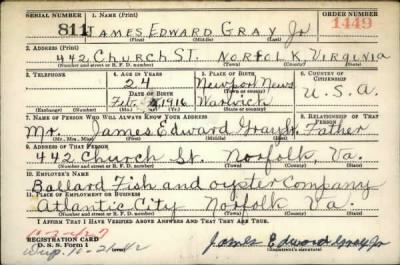 SERIAL NUMBER 1. NAME (Print) ORDER NUMBER
811 JAMES EDWARD GRAY Jr 1449
(First) (Middle) (Last)
2. ADDRESS (Print)
442 CHURCH ST. NORFOLK VIRGINIA
(Number and street or R. F. D. number) (Town) (County) (State)
3. TELEPHONE 4. AGE IN YEARS 5. PLACE OF BIRTH 6. COUNTRY OF CITIZENSHIP
24 Newport News
DATE OF BIRTH U.S.A.
Feb. 1916 Warwick
(Exchange) (Number) (Mo.) (Day) (Yr.) (State or country)
7. NAME OF PERSON WHO WILL ALWAYS KNOW YOUR ADDRESS 8. RELATIONSHIP OF THAT PERSON
Mr. James Edward Gray Sr. Father
(Mr., Mrs., Miss) (First) (Middle) (Last)
9. ADDRESS OF THAT PERSON
442 Church St. Norfolk, Va.
(Number and street or R. F. D. number) (Town) (County) (State)
10. EMPLOYER'S NAME
Ballard Fish and oyster Company
11. PLACE OF EMPLOYMENT OR BUSINESS
Atlantic City Norfolk Va.
(Number and street or R. F. D. number) (Town) (County) (State)
I AFFIRM THAT I HAVE VERIFIED ABOVE ANSWERS AND THAT THEY ARE TRUE.
REGISTRATION CARD
D. S. S. Form 1 James Edward Gray Jr